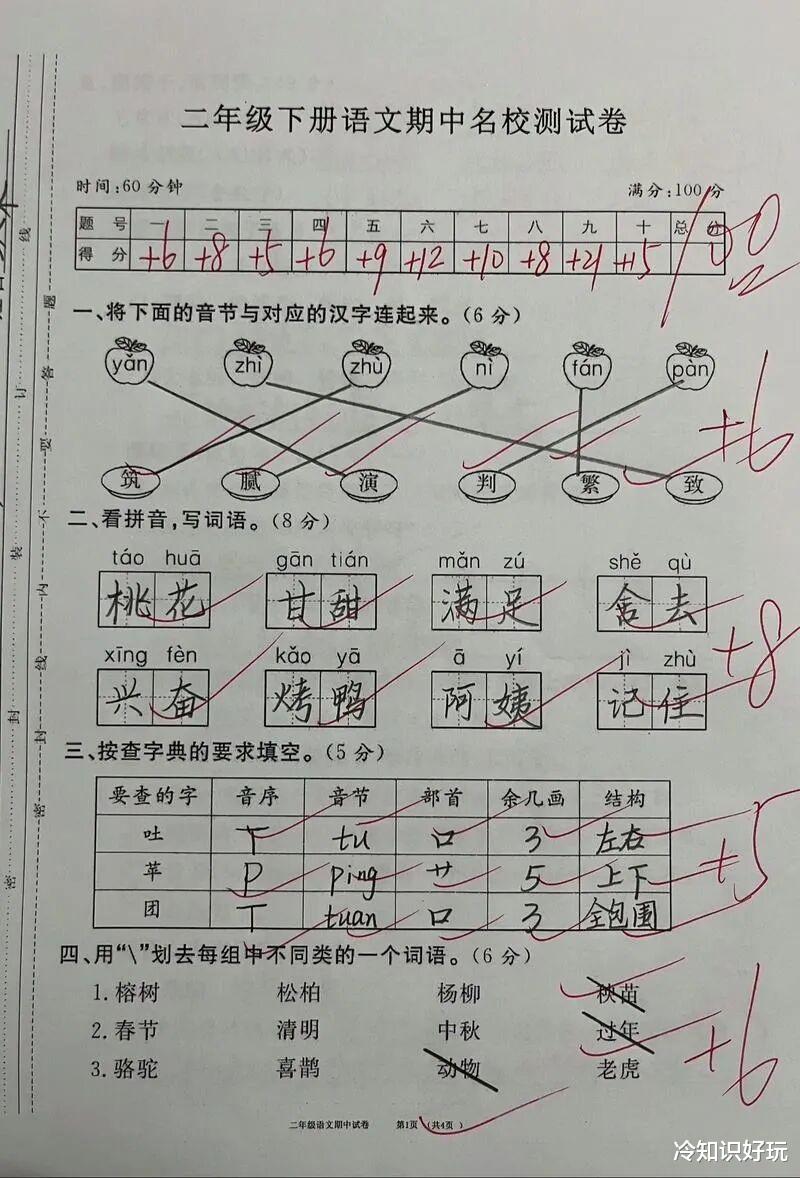 二年级下册语文期中名校测试卷
时间:60分钟 满分:100分
题号 一 二 三 四 五 六 七 八 九 十 总分
得分 +6 +8 +5 +6 +9 +12 +10 +8 +21 +15 100
一、将下面的音节与对应的汉字连起来。(6分)
yǎn zhì zhù nì fán pàn
筑 腻 演 判 繁 致
+6
二、看拼音,写词语。(8分)
táo huā gān tián mǎn zú shě qù
桃花 甘甜 满足 舍去
xīng fèn kǎo yā ā yí jì zhù
兴奋 烤鸭 阿姨 记住
+8
三、按查字典的要求填空。(5分)
要查的字 音序 音节 部首 余几画 结构
吐 T tu 口 3 左右
苹 P ping 艹 5 上下
团 T tuan 口 3 全包围
+5
四、用“\”划去每组中不同类的一个词语。(6分)
1.榕树 松柏 杨柳 秧苗
2.春节 清明 中秋 过年
3.骆驼 喜鹊 动物 老虎
+6
二年级语文期中试卷 第1页 (共4页)
密 封 装 订 线
密 封 线 内 不 要 答 题
冷知识好玩